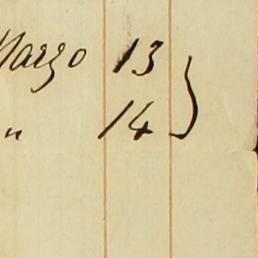 Marzo 13 }
" 14